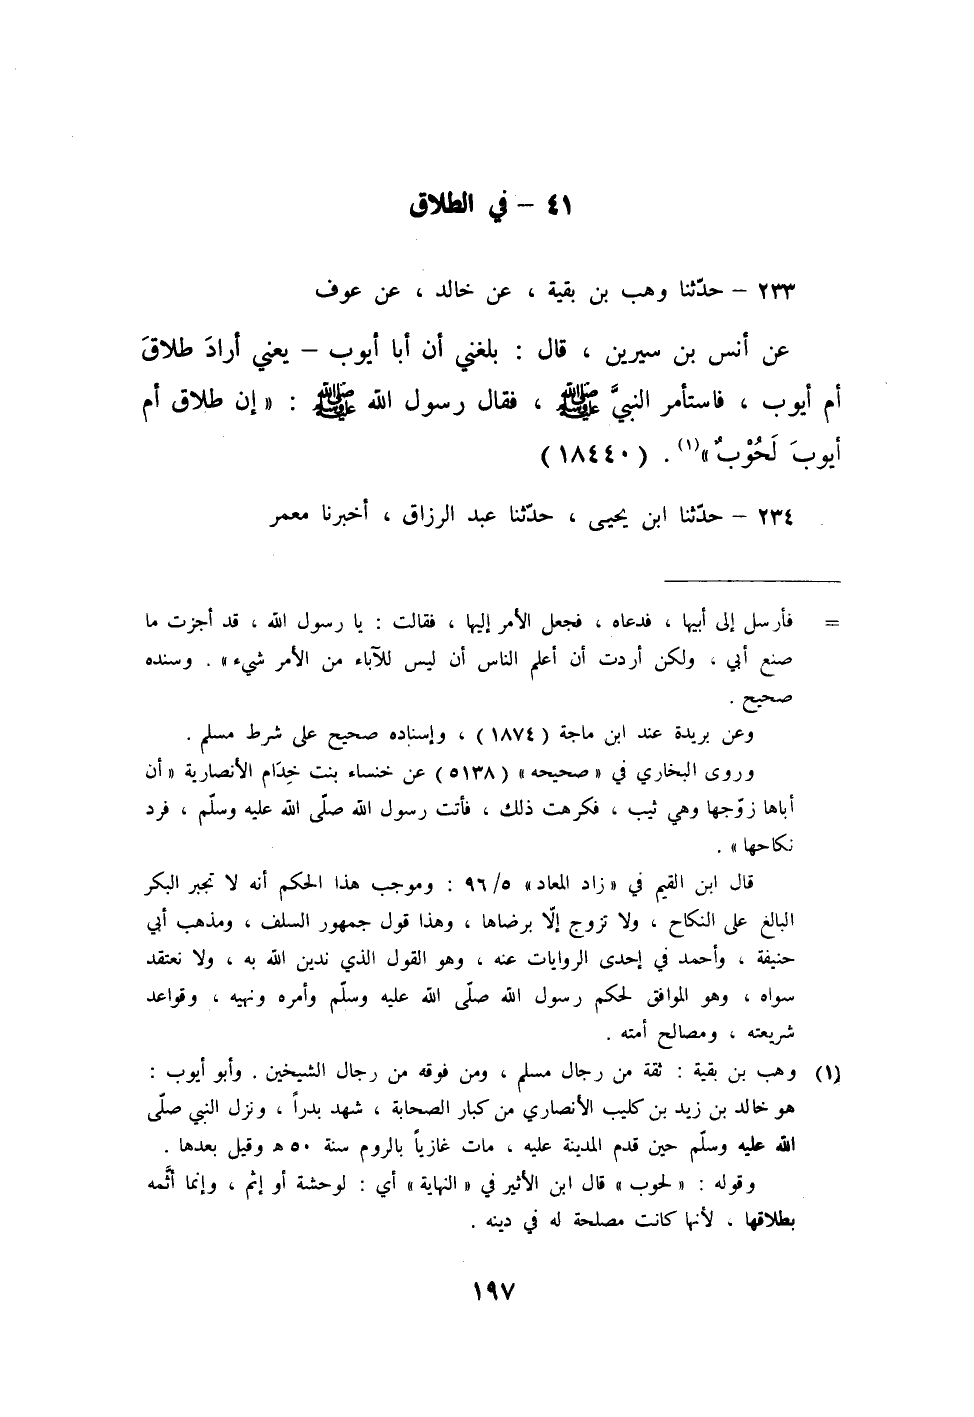 ٤١ – في الطلاق
٢٣٣ – حدّثنا وهب بن بقية ، عن خالد ، عن عوف
عن أنس بن سيرين ، قال : بلغني أن أبا أيوب – يعني أرادَ طلاقَ
أم أيوب ، فاستأمر النبيَّ ﷺ ، فقال رسول الله ﷺ : « إن طلاق أم
أيوبَ لَحُوْبٌ »(١) . (١٨٤٤٠)
٢٣٤ – حدّثنا ابن يحيـى ، حدّثنا عبد الرزاق ، أخبرنا معمر
= فأرسل إلى أبيها ، فدعاه ، فجعل الأمر إليها ، فقالت : يا رسول الله ، قد أجزت ما
صنع أبي ، ولكن أردت أن أعلم الناس أن ليس للآباء من الأمر شيء » . وسنده
صحيح .
وعن بريدة عند ابن ماجة (١٨٧٤) ، وإسناده صحيح على شرط مسلم .
وروى البخاري في « صحيحه » (٥١٣٨) عن خنساء بنت خِدَام الأنصارية « أن
أباها زوّجها وهي ثيب ، فكرهت ذلك ، فأتت رسول الله صلّى الله عليه وسلّم ، فرد
نكاحها » .
قال ابن القيم في « زاد المعاد » ٩٦/٥ : وموجب هذا الحكم أنه لا تجبر البكر
البالغ على النكاح ، ولا تزوج إلّا برضاها ، وهذا قول جمهور السلف ، ومذهب أبي
حنيفة ، وأحمد في إحدى الروايات عنه ، وهو القول الذي ندين الله به ، ولا نعتقد
سواه ، وهو الموافق لحكم رسول الله صلّى الله عليه وسلّم وأمره ونهيه ، وقواعد
شريعته ، ومصالح أمته .
(١) وهب بن بقية : ثقة من رجال مسلم ، ومن فوقه من رجال الشيخين . وأبو أيوب :
هو خالد بن زيد بن كليب الأنصاري من كبار الصحابة ، شهد بدراً ، ونزل النبي صلّى
الله عليه وسلّم حين قدم المدينة عليه ، مات غازياً بالروم سنة ٥٠ هـ وقيل بعدها .
وقوله : « لحوب » قال ابن الأثير في « النهاية » أي : لوحشة أو إثم ، وإنما أثَّمه
بطلاقها ، لأنها كانت مصلحة له في دينه .
١٩٧